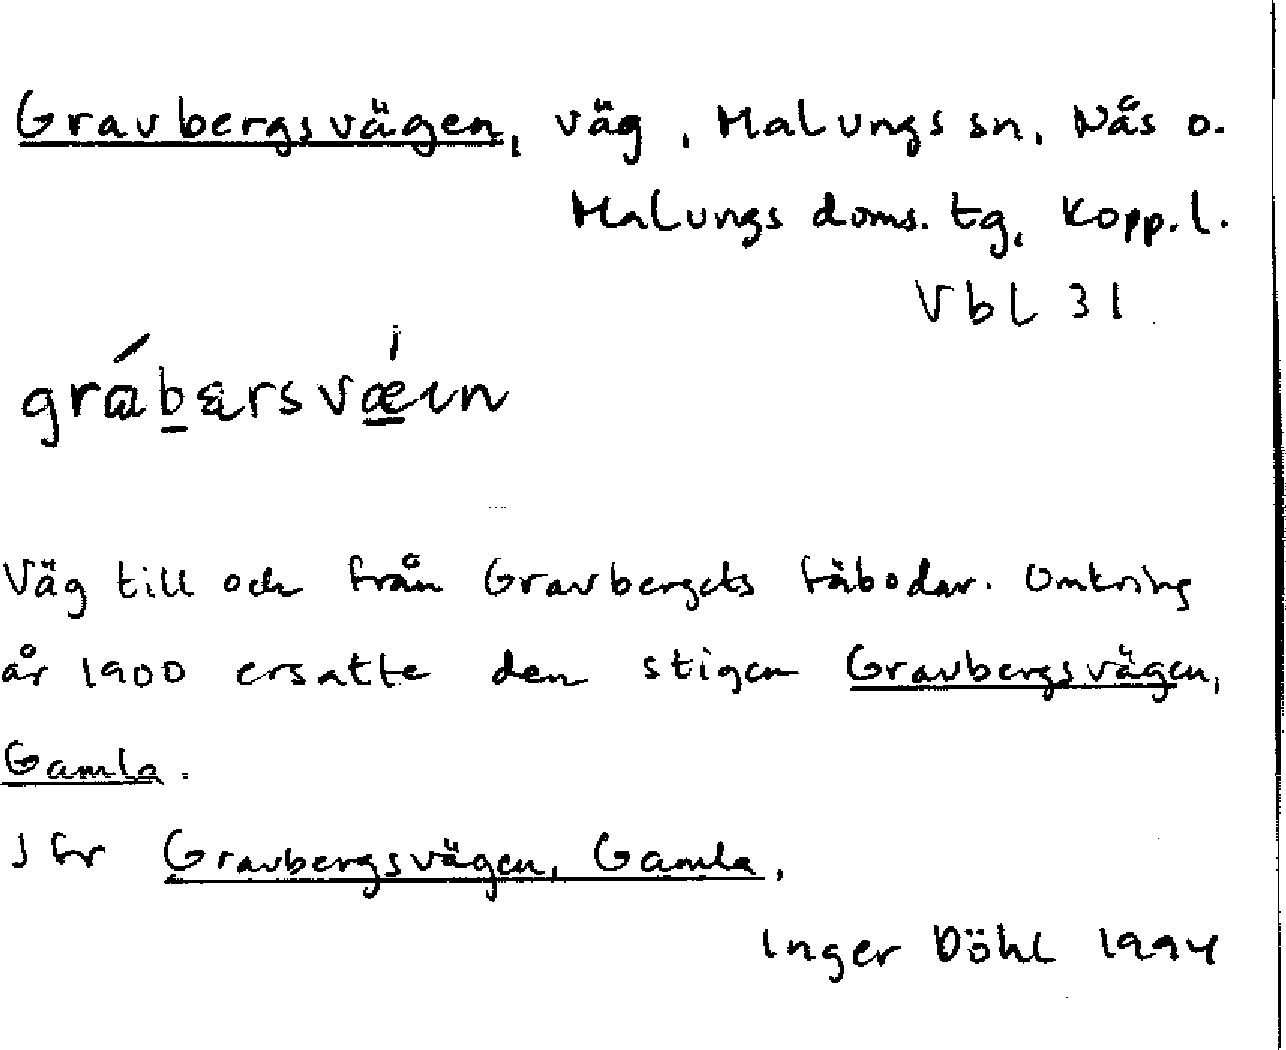 Gravbergsvägen, väg, Malungs sn, Nås o.
Malungs doms. tg, Kopp. l.
Vbl 31
Väg till och från Gravbergets fäbodar. Omkring
år 1900 ersatte den stigen Gravbergsvägen,
Gamla.
Jfr Gravbergsvägen, Gamla.
Inger Döhl 1994